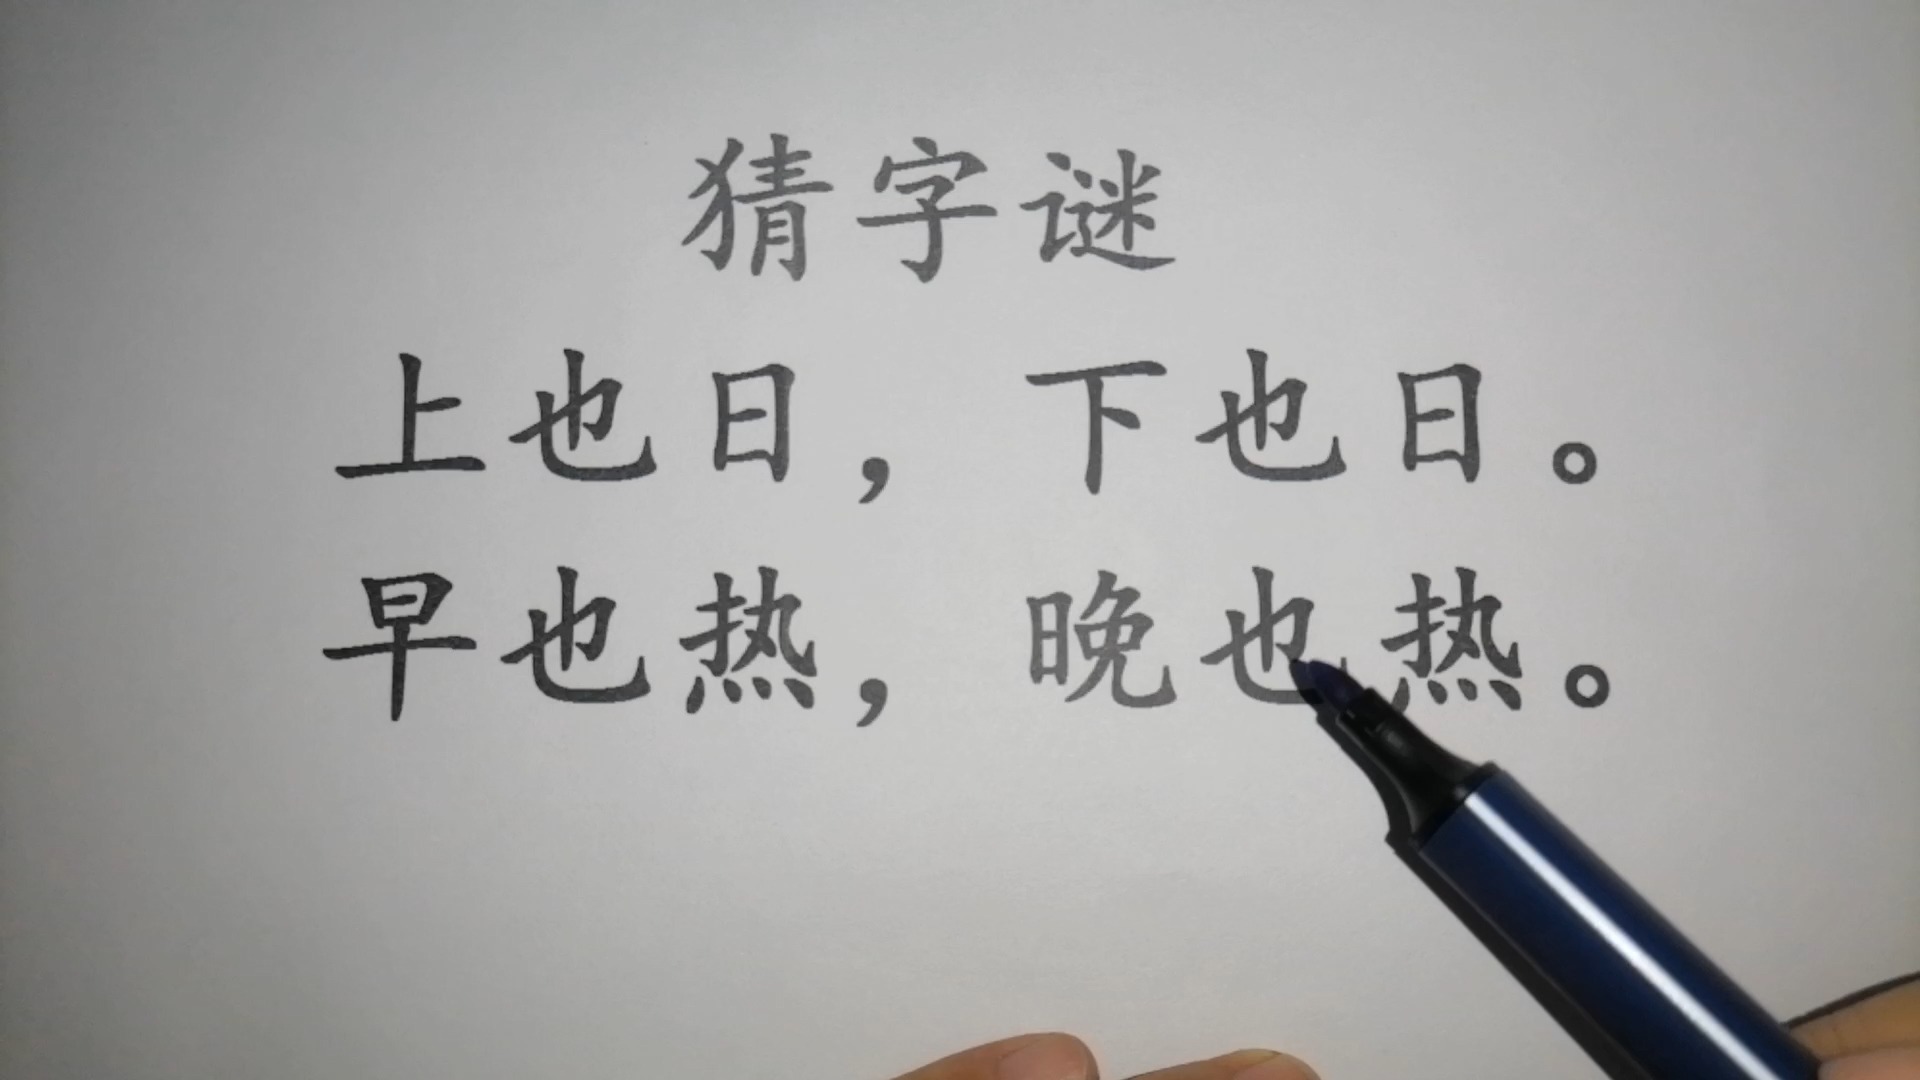 猜字谜
上也日，下也日。
早也热，晚也热。